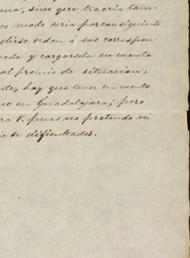 ma, sino que traeria tam-
co modo seria por consiguiente
diese orden á sus correspon-
cada y cargarsela en cuenta
al premio de situacion,
hay que tener en cuenta
en Guadalajara; pero
ra V. pues no pretendo
de dificultades.